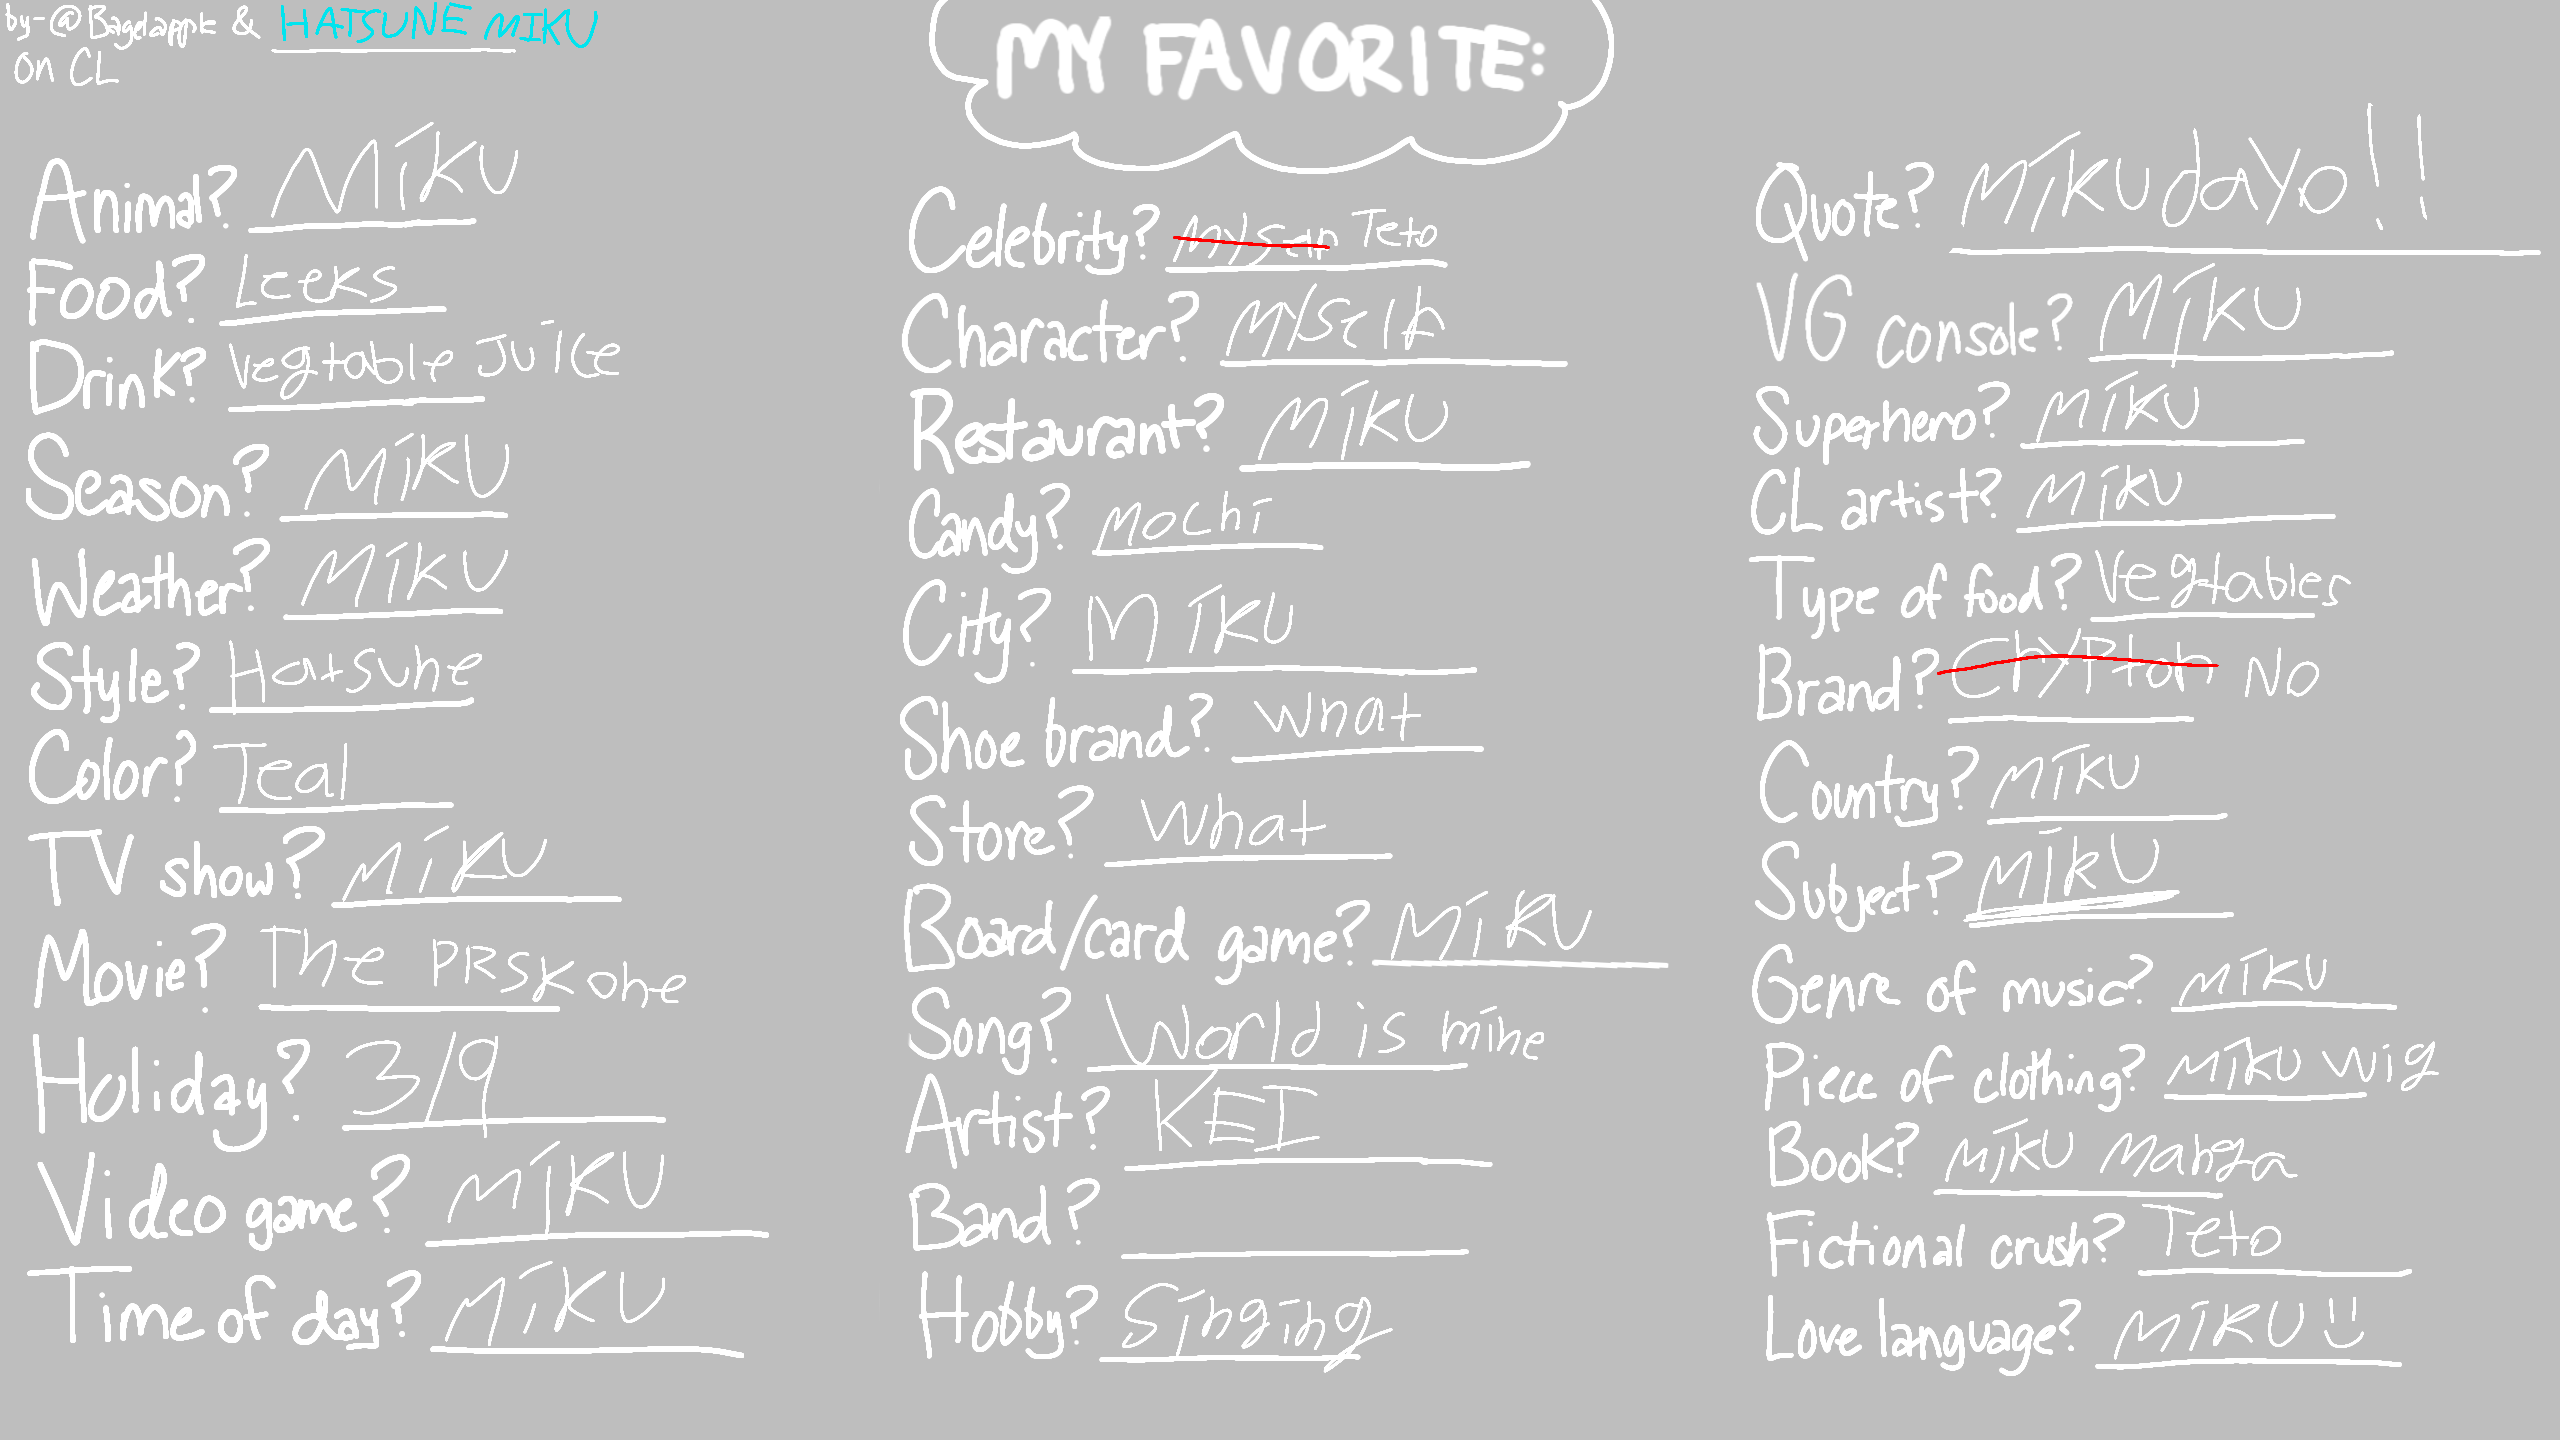 by-@Bagelappk & HATSUNE MIKU
on CL
MY FAVORITE:
Animal? MIKU
Food? Leeks
Drink? Vegtable Juice
Season? MIKU
Weather? MIKU
Style? Hatsune
Color? Teal
TV show? MIKU
Movie? The PRSK one
Holiday? 3/9
Video game? MIKU
Time of day? MIKU
Celebrity? Myself Teto
Character? Myself
Restaurant? MIKU
Candy? Mochi
City? MIKU
Shoe brand? What
Store? What
Board/card game? MIKU
Song? World is mine
Artist? KEI
Band?
Hobby? Singing
Quote? MIKUdAYo!!
VG console? MIKU
Superhero? MIKU
CL artist? MIKU
Type of food? Vegtables
Brand? Chypton No
Country? MIKU
Subject? MIKU
Genre of music? MIKU
Piece of clothing? MIKU wig
Book? MIKU Manga
Fictional crush? Teto
Love language? MIKU